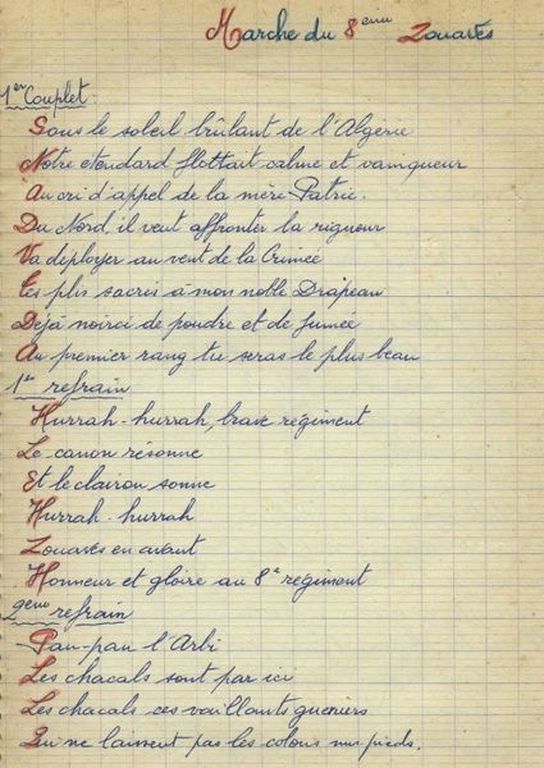 Marche du 8eme Zouaves
1er Couplet
Sous le soleil brûlant de l'Algérie
Notre etendard flottait calme et vainqueur
Au cri d'appel de la mère Patrie.
Du Nord, il veut affronter la rigueur
Va déployer au vent de la Crimée
Tes plis sacrés ô mon noble Drapeau
Déjà noirci de poudre et de fumée
Au premier rang tu seras le plus beau
1er refrain
Hurrah-hurrah, brave régiment
Le canon résonne
Et le clairon sonne
Hurrah-hurrah
Zouaves en avant
Honneur et gloire au 8e régiment
2eme refrain
Pan-pan l'Arbi
Les chacals sont par ici
Les chacals ces vaillants guerriers
Qui ne laissent pas les colons nus pieds.